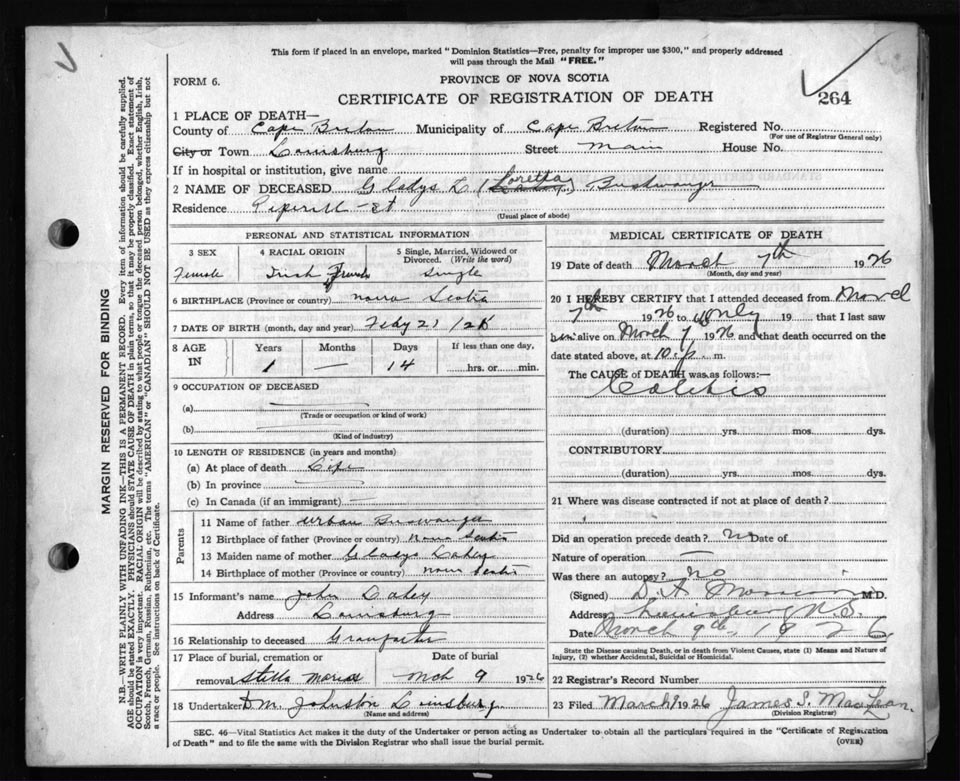 This form if placed in an envelope, marked "Dominion Statistics—Free, penalty for improper use $300," and properly addressed
will pass through the Mail "FREE."
FORM 6.
PROVINCE OF NOVA SCOTIA
CERTIFICATE OF REGISTRATION OF DEATH
264
1 PLACE OF DEATH—
County of Cape Breton Municipality of Cape Breton Registered No.
(For use of Registrar General only)
City or Town Louisburg Street Main House No.
If in hospital or institution, give name
2 NAME OF DECEASED Gladys L (Loretta)
Residence St
(Usual place of abode)
PERSONAL AND STATISTICAL INFORMATION
3 SEX
Female
4 RACIAL ORIGIN
Irish French
5 Single, Married, Widowed or
Divorced. (Write the word)
Single
6 BIRTHPLACE (Province or country) Nova Scotia
7 DATE OF BIRTH (month, day and year) Feby 21/25
8 AGE
IN
Years
1
Months
—
Days
14
If less than one day,
hrs. or min.
9 OCCUPATION OF DECEASED
(a)
(Trade or occupation or kind of work)
(b)
(Kind of industry)
10 LENGTH OF RESIDENCE (in years and months)
(a) At place of death Life
(b) In province
(c) In Canada (if an immigrant)
Parents
11 Name of father Urban
12 Birthplace of father (Province or country) Nova Scotia
13 Maiden name of mother Gladys
14 Birthplace of mother (Province or country) Nova Scotia
15 Informant's name John
Address Louisburg
16 Relationship to deceased Granfather
17 Place of burial, cremation or
removal Stella Maris
Date of burial
Mch 9 1926
18 Undertaker D M Johnston Louisburg
(Name and address)
MEDICAL CERTIFICATE OF DEATH
19 Date of death March 7th 1926
(Month, day and year)
20 I HEREBY CERTIFY that I attended deceased from March
7th 1926 to only 19 that I last saw
him alive on March 7 1926 and that death occurred on the
date stated above, at 10 p. m.
The CAUSE of DEATH was as follows:—
(duration) yrs. mos. dys.
CONTRIBUTORY
(duration) yrs. mos. dys.
21 Where was disease contracted if not at place of death?
Did an operation precede death? No Date of
Nature of operation —
Was there an autopsy? no
(Signed) D. A. M.D.
Address Louisburg N.S.
Date March 9th, 1926
State the Disease causing Death, or in death from Violent Causes, state (1) Means and Nature of
Injury, (2) whether Accidental, Suicidal or Homicidal.
22 Registrar's Record Number
23 Filed March 1926 James
(Division Registrar)
SEC. 46—Vital Statistics Act makes it the duty of the Undertaker or person acting as Undertaker to obtain all the particulars required in the "Certificate of Registration
of Death" and to file the same with the Division Registrar who shall issue the burial permit.
(OVER)
MARGIN RESERVED FOR BINDING
N.B.—WRITE PLAINLY WITH UNFADING INK—THIS IS A PERMANENT RECORD. Every item of information should be carefully supplied.
AGE should be stated EXACTLY. PHYSICIANS should STATE CAUSE OF DEATH in plain terms, so that it may be properly classified. Exact statement of
OCCUPATION is very important. RACIAL ORIGIN will be described by stating to what people or tongue the deceased person belonged, whether English, Irish,
Scotch, French, German, Russian, Ruthenian, etc. The terms "AMERICAN" or "CANADIAN" SHOULD NOT BE USED as they express citizenship but not
a race or people. See instructions on back of Certificate.